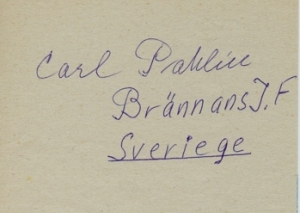 Carl Pahlin
Brännans I.F
Sveriege